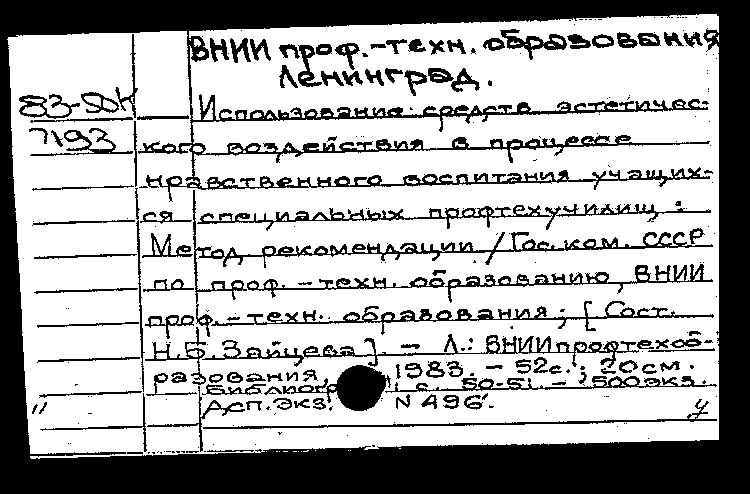 ВНИИ проф.-техн. образования
Ленинград.
83-50К
7193
Использование средств эстетичес-
кого воздействия в процессе
нравственного воспитания учащих-
ся специальных профтехучилищ :
Метод рекомендации / Гос. ком. СССР
по проф.-техн. образованию, ВНИИ
проф.-техн. образования ; [ Сост.
Н.Б. Зайцева ]. - Л.: ВНИИпрофтехоб-
разования, 1983. - 52с. ; 20см.
Библиогр с. 50-51. - 500экз.
Дсп. экз. N 496.
у